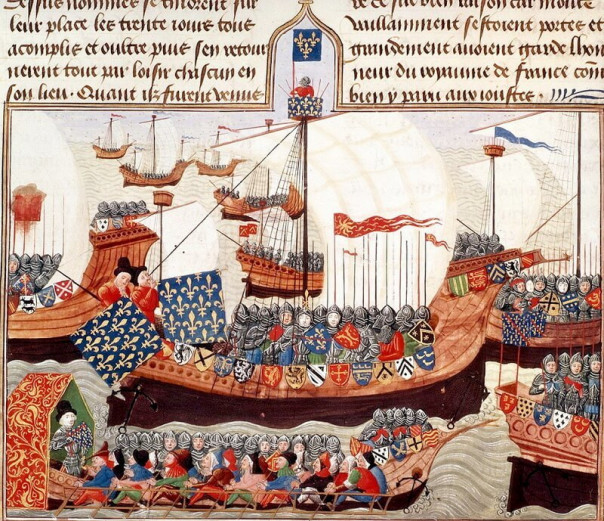 leur place les trente iours tous
acomplis et oultre puis sen retour
nerent tout par loisir chascun en
son lieu. Quant ilz furent venus
de ce fut bien raison car moult
vaillamment sestoient portes et
grandement auoient garde lhon
neur du royaume de france com
bien y paru aux ioustes.